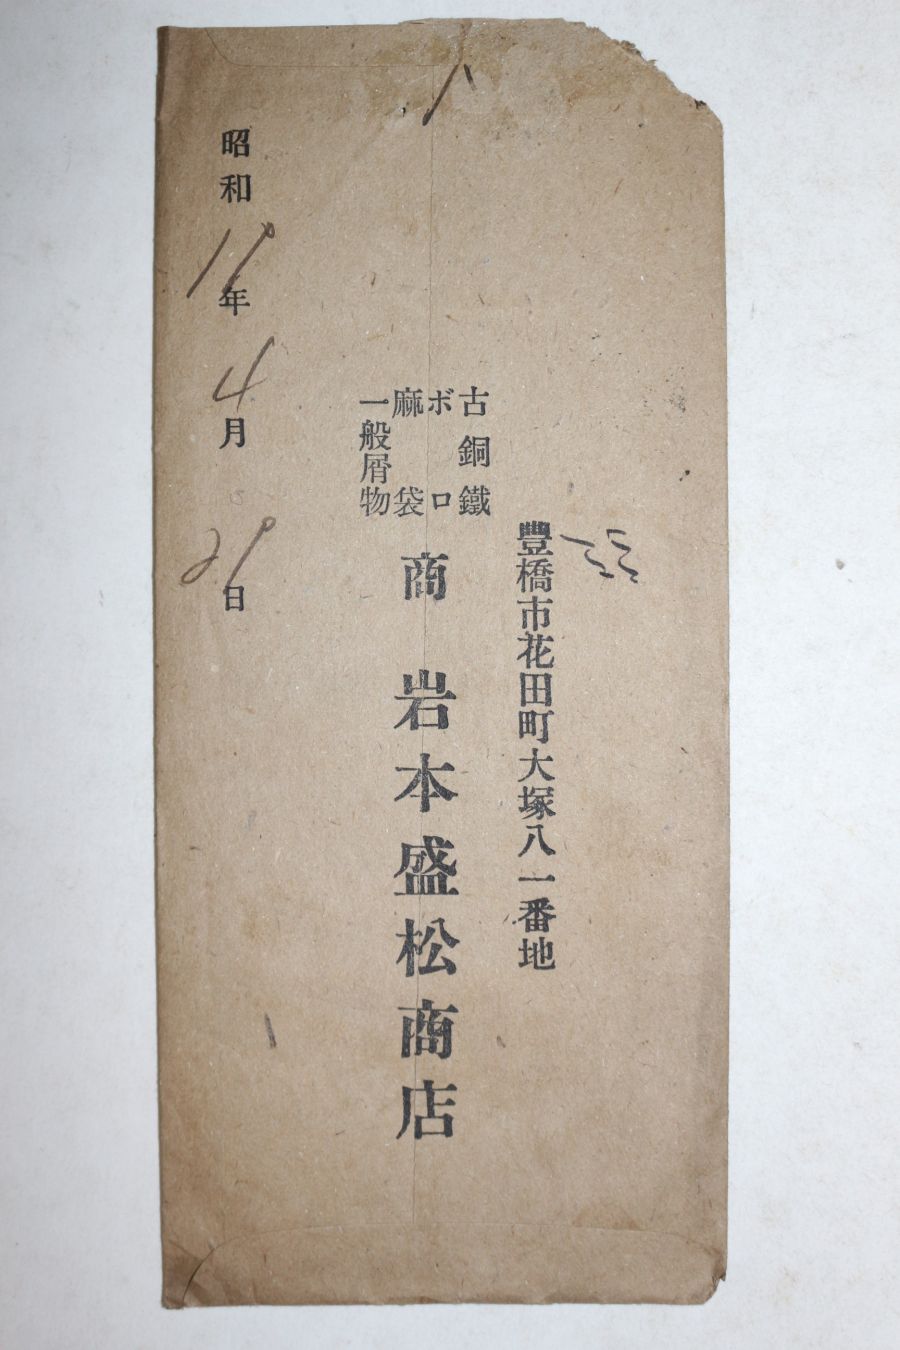 豊橋市花田町大塚八一番地
古銅鐵
ボロ
麻袋
一般屑物
商
岩本盛松商店
昭和19年4月29日